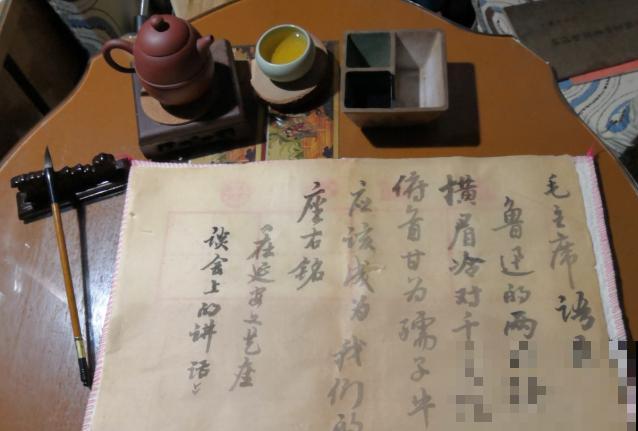 毛主席语
鲁迅的两
横眉冷对千
俯首甘为孺子牛
应该成为我们的
座右铭
《在延安文艺座
谈会上的讲话》